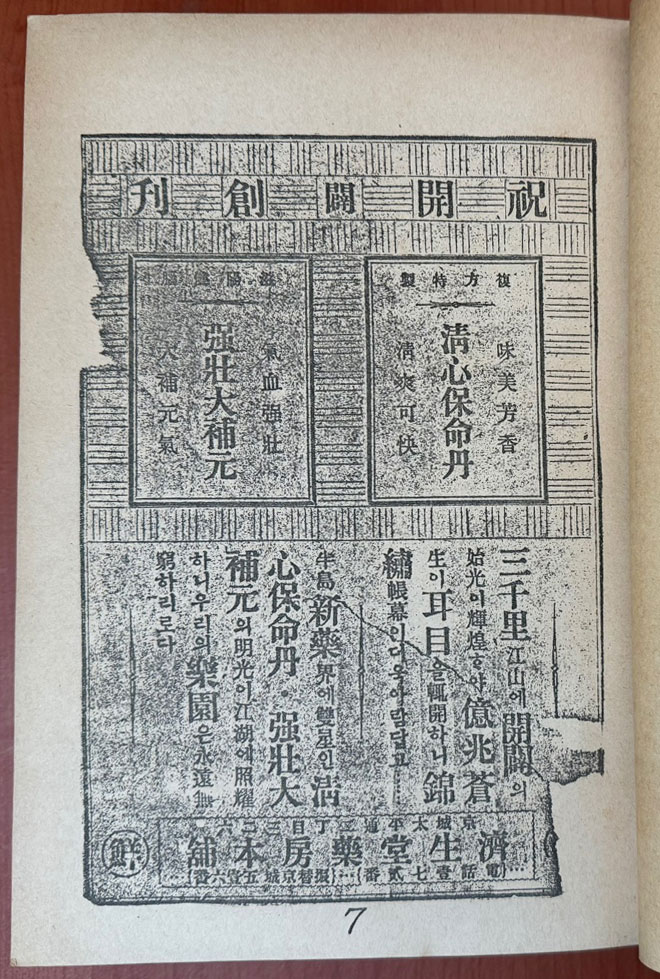 祝開闢創刊
復方特製
味美芳香
淸心保命丹
淸爽可快
氣血強壯
强壯大補元
大補元氣
三千里江山에開闢의
始光이輝煌ᄒᆞ야億兆蒼
生이耳目을輒開하니錦
繡帳幕이더욱아람답고……
半島新藥界에雙星인淸
心保命丹・强壯大
補元의明光이江湖에照耀
하니우리의樂園은永遠無
窮하리로다
京城太平通 丁目
濟生堂藥房本舖
…{電話壹七貳番}…{振替京城五壹六番}…
鮮
7